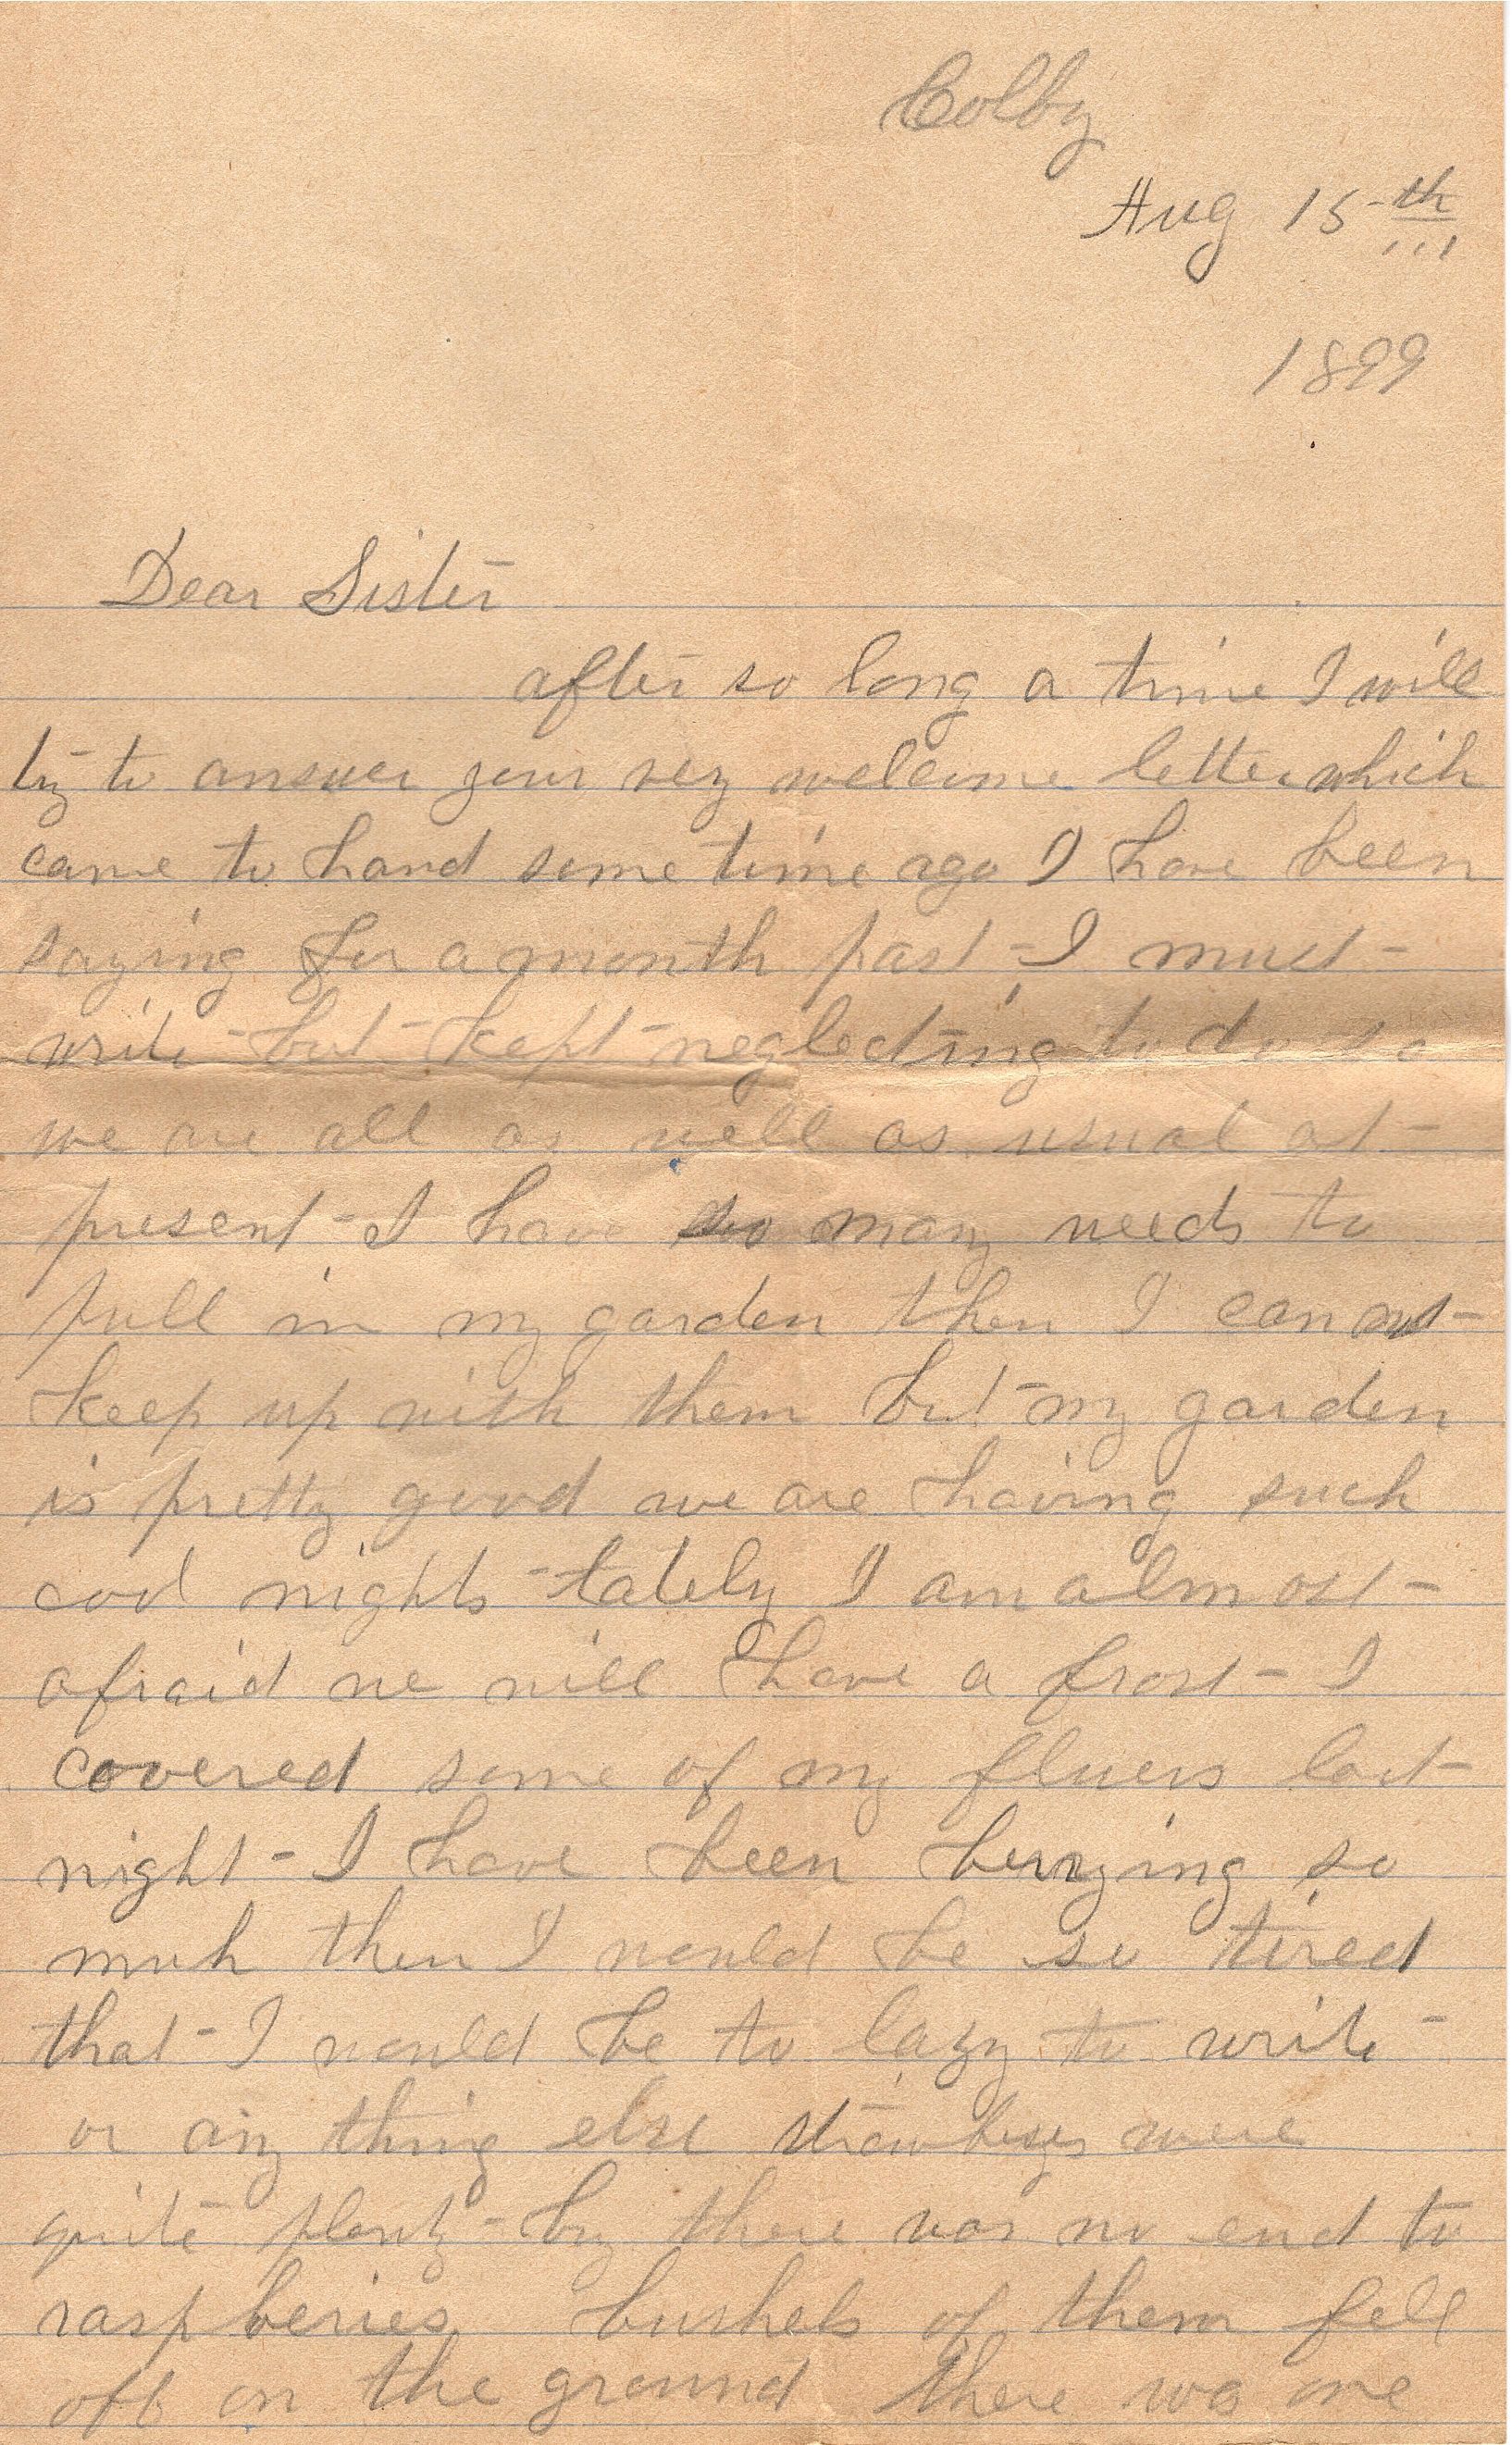 Colby
Aug 15th
1899
Dear Sister
after so long a time I will
try to answer your very welcome letter which
came to hand some time ago I have been
saying for a month past I must
write but kept neglecting to do so
we are all as well as usual at
present I have so many weeds to
pull in my garden then I can not
keep up with them but my garden
is pretty good we are having such
cool nights lately I am almost
afraid we will have a frost I
covered some of my flowers last
night I have been burying so
muh then I would be so tired
that I would be to lazy to write
or any thing else were
quite plenty by there was no end to
raspberies bushels of them fell
off on the ground there was one